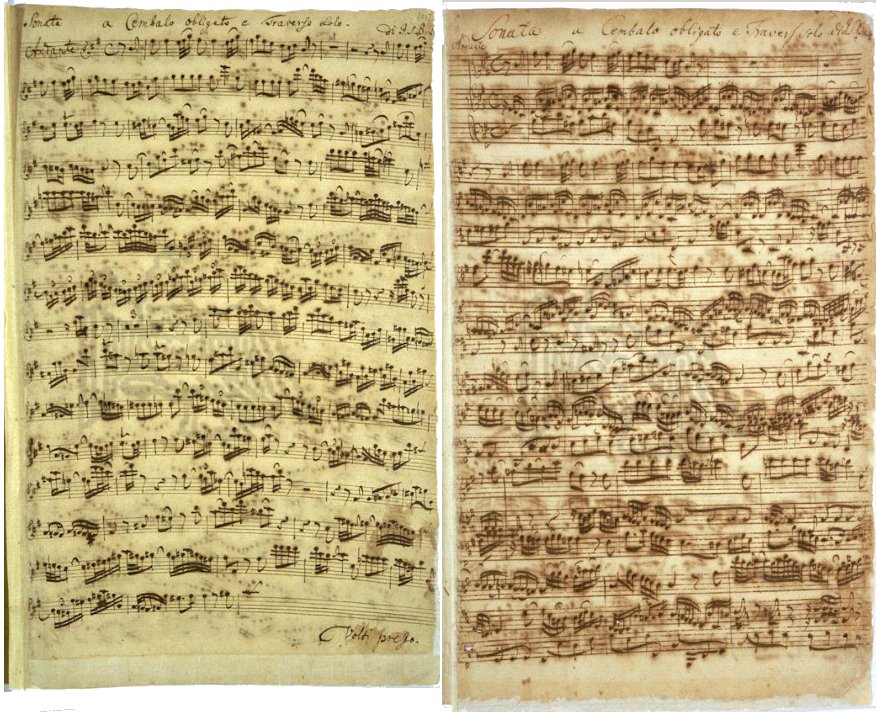 Sonata a Cembalo obligato e Traverso solo.
di J. S. Bach
Andante
Volti presto.
Sonata a Cembalo obligato e Traverso solo di J. S.
Andante